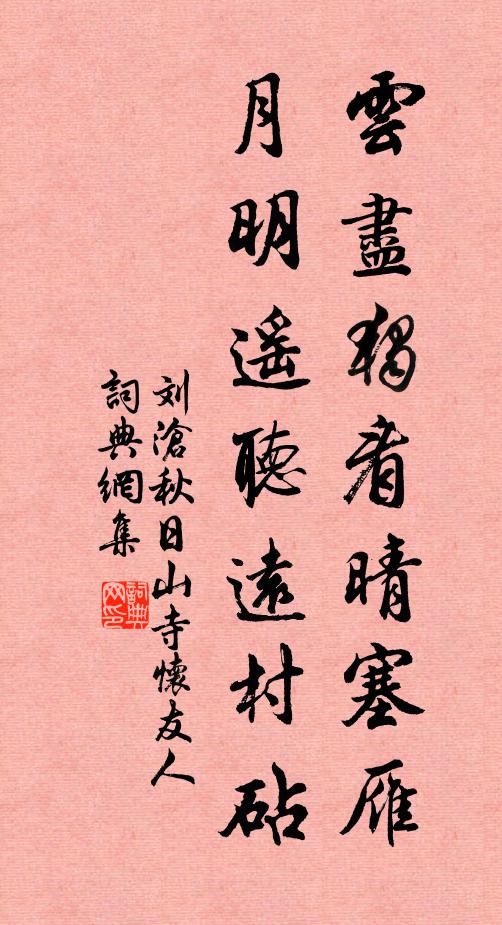 雲盡獨看晴塞雁
月明遥聽遠村砧
刘滄秋日山寺懷友人
詞典網集
詞典网印